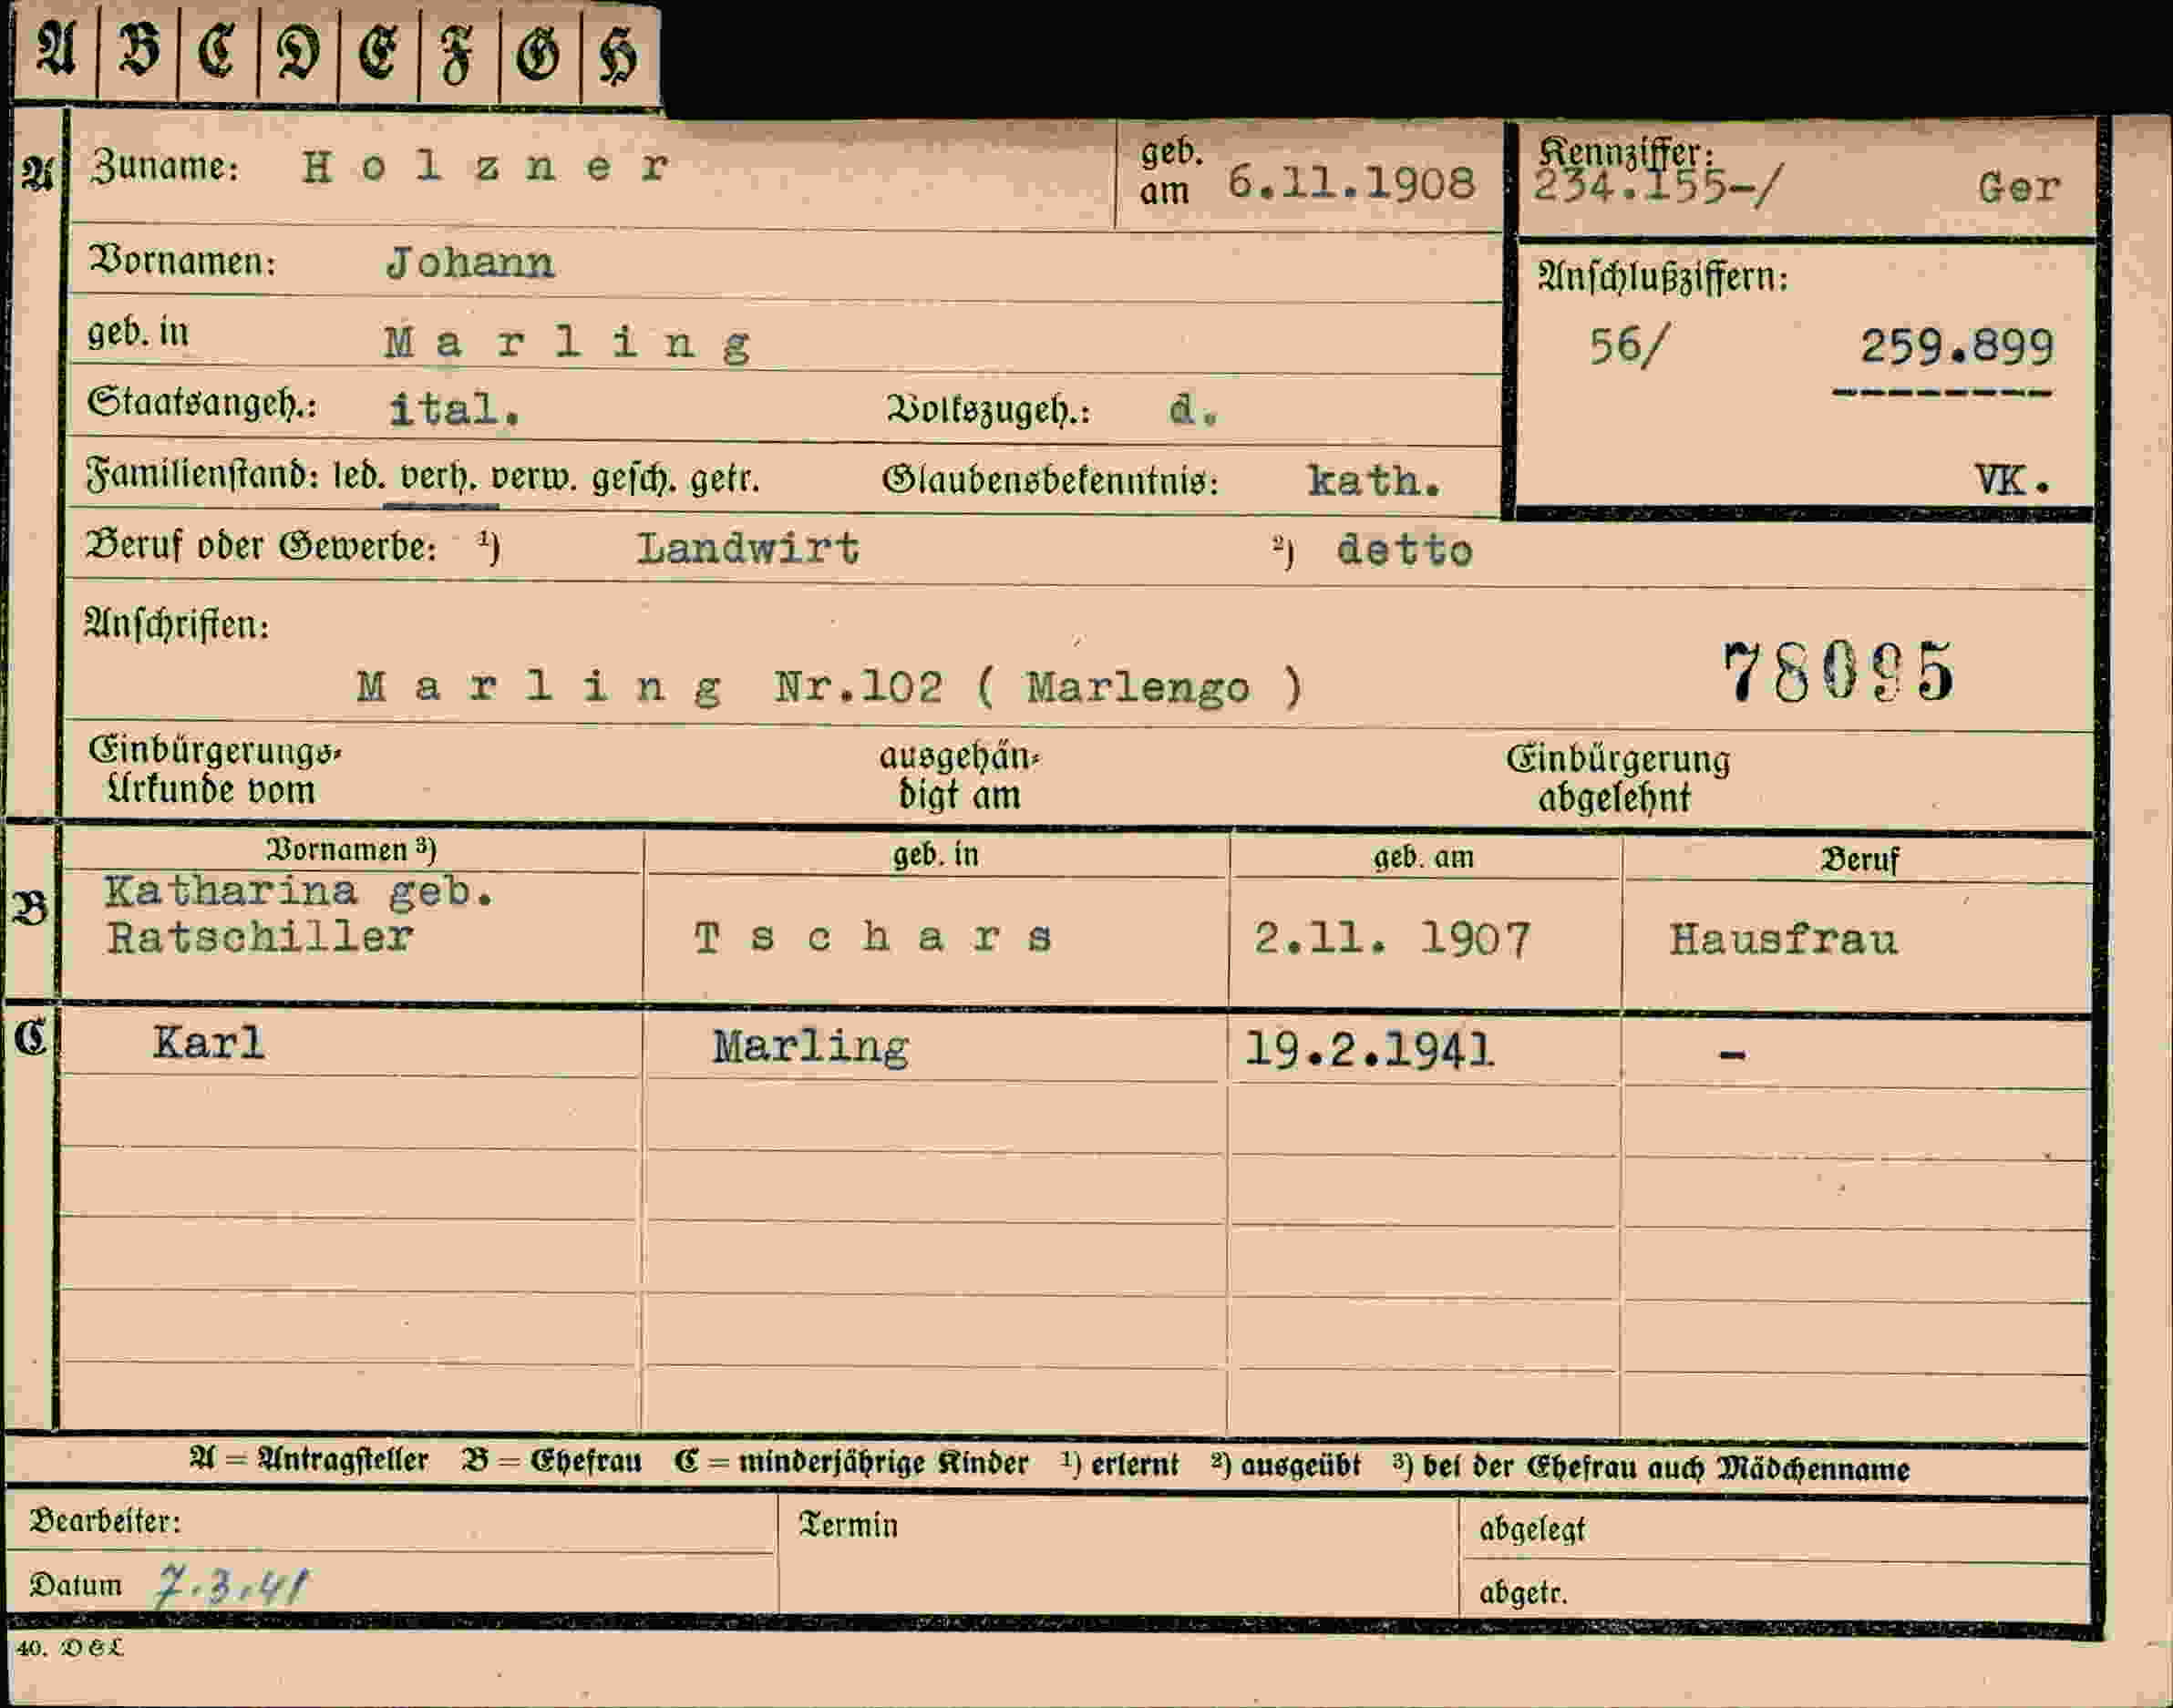 A B C D E F G H
A Zuname: Holzner geb. am 6.11.1908 Kennziffer: 234.155-/ Ger
Vornamen: Johann Anschlußziffern:
geb. in Marling 56/ 259.899
Staatsangeh.: ital. Volkszugeh.: d.
Familienstand: led. verh. verw. gesch. getr. Glaubensbekenntnis: kath. VK.
Beruf oder Gewerbe: 1) Landwirt 2) detto
Anschriften:
Marling Nr.102 ( Marlengo ) 78095
Einbürgerungs- ausgehän- Einbürgerung
Urkunde vom digt am abgelehnt
Vornamen 3) geb. in geb. am Beruf
B Katharina geb.
Ratschiller Tschars 2.11. 1907 Hausfrau
C Karl Marling 19.2.1941 -
A = Antragsteller B = Ehefrau C = minderjährige Kinder 1) erlernt 2) ausgeübt 3) bei der Ehefrau auch Mädchenname
Bearbeiter: Termin abgelegt
Datum 7.3.41 abgetr.
40. D&L